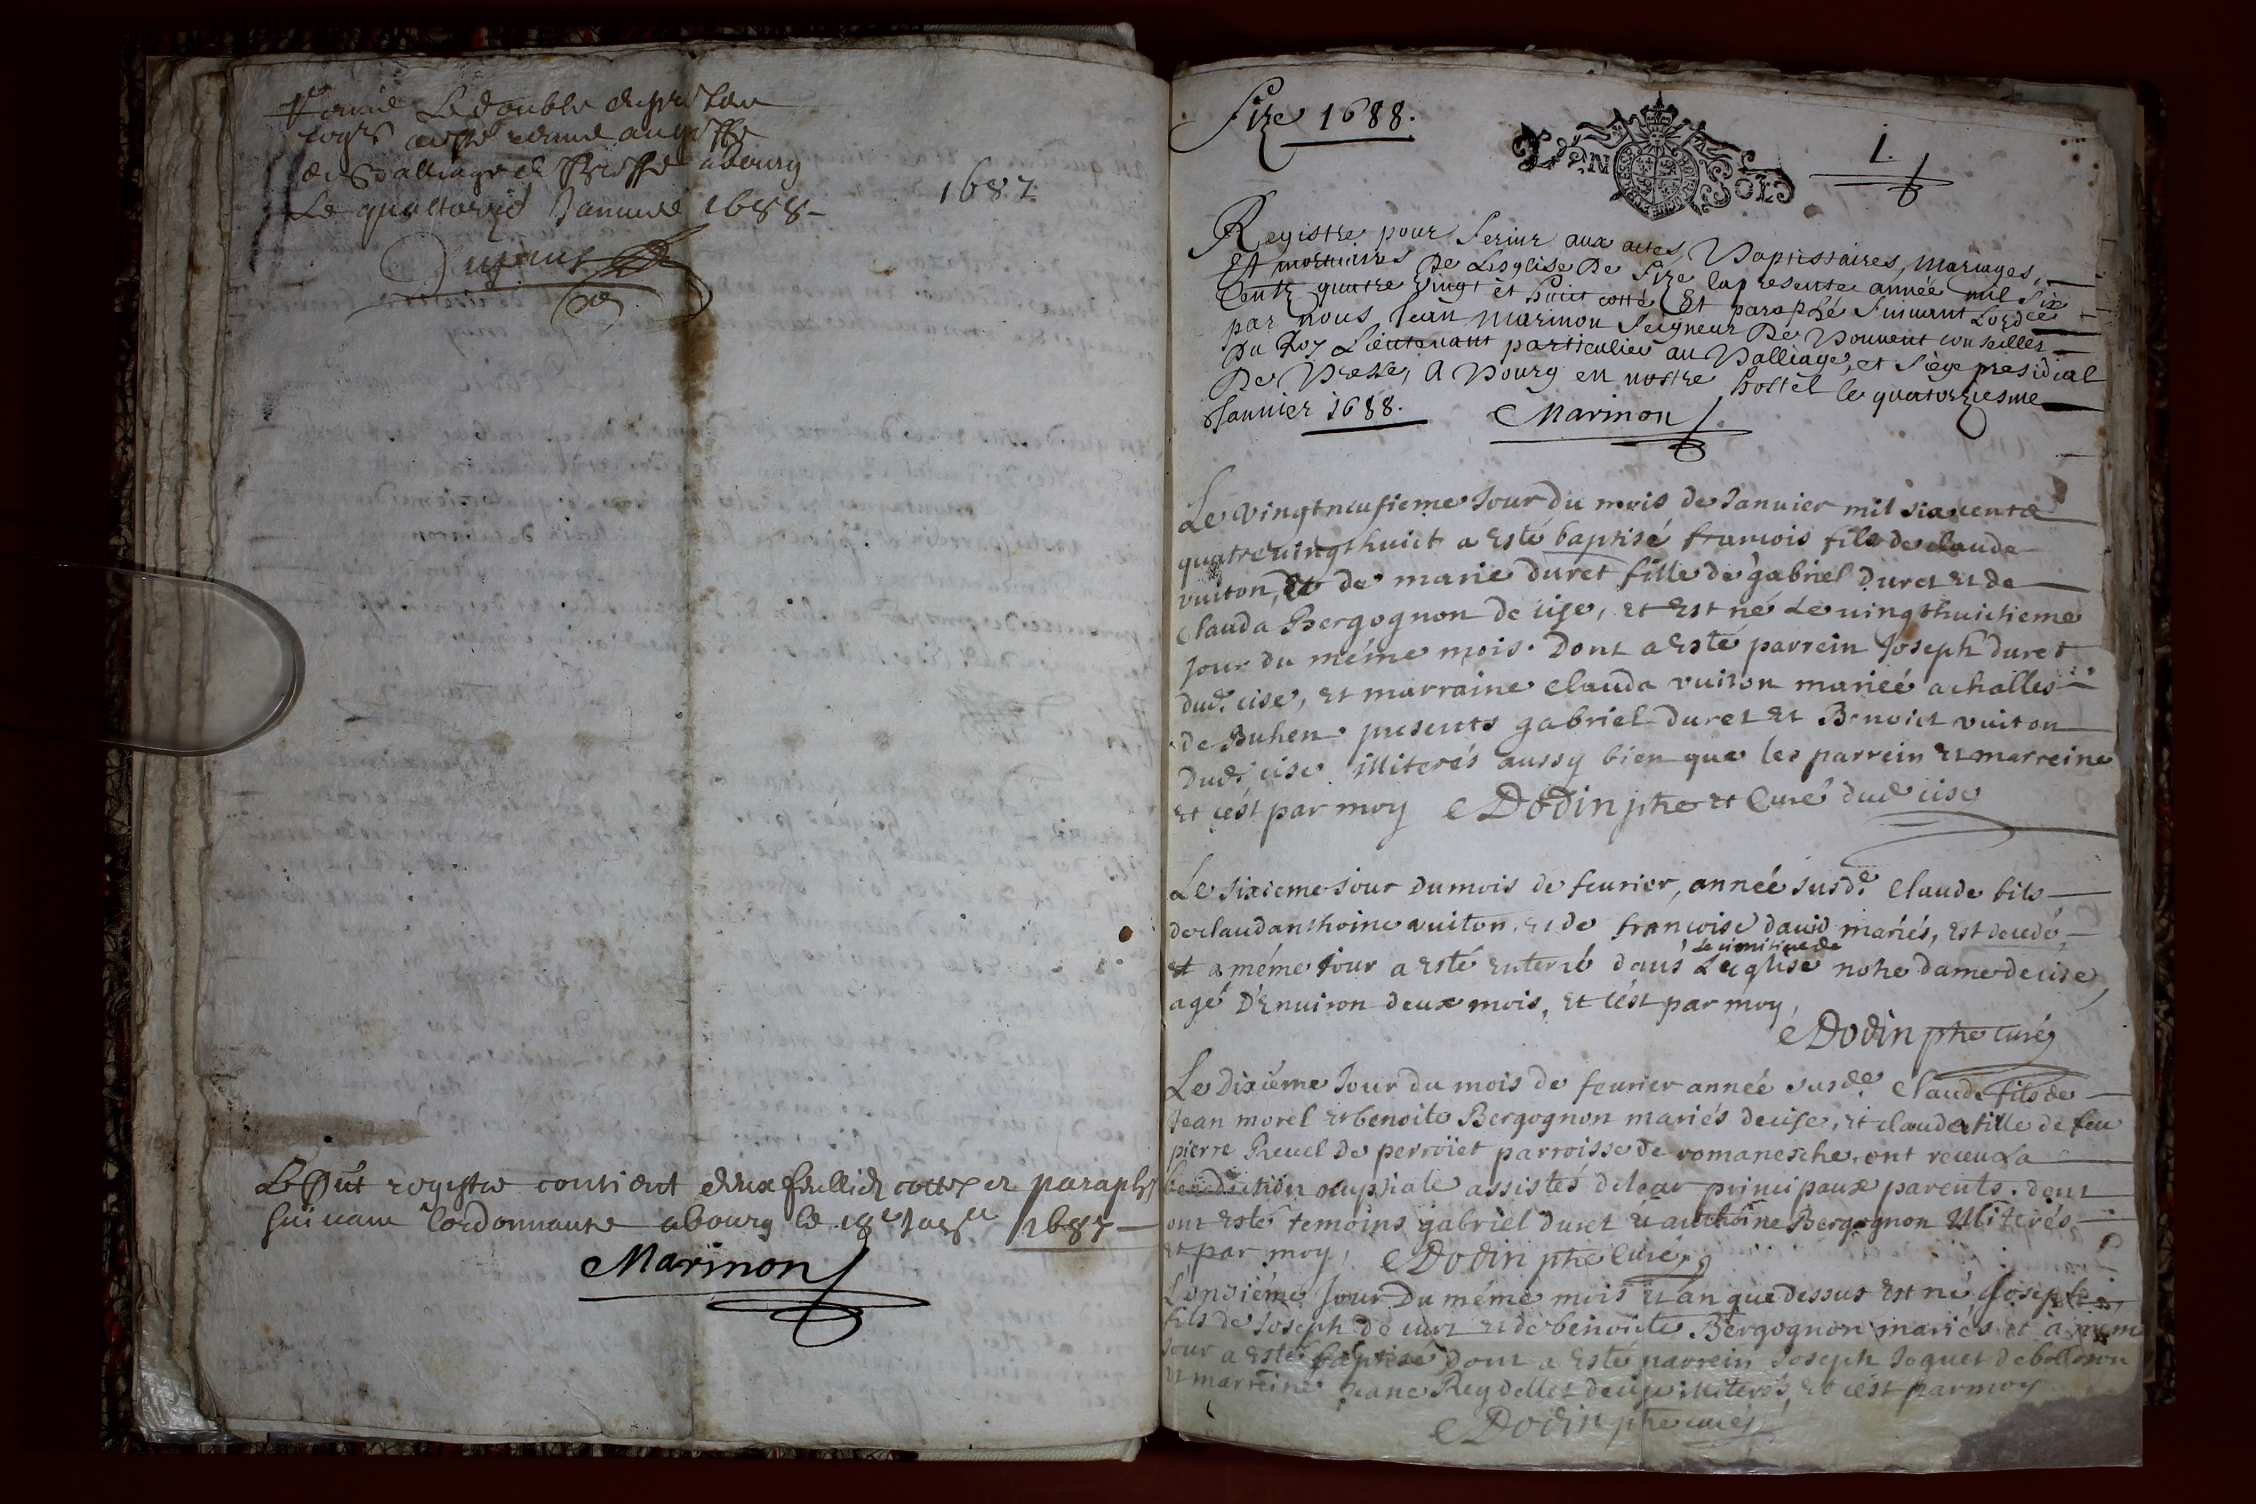 Le double du
au greffe
du Balliage de Bresse a bourg
Le quatorzie Januier 1688
1687
Le pnt registre contient deux feullietz cottez et paraphez
suiuant l'ordonnance a bourg le 1687
Marinon
Size 1688.
1.
Registre pour seruir aux actes Baptistaires, mariages,
Et mortuaires De Lesglise De Size la presente année mil six
Centz quatre vingt et huict cotté Et paraphé suiuant Lordce
par nous Jean Marinon Seigneur De Bouuent conseiller
Du Roy Lieutenant particulier au Balliage, et siège presidial
De Bresse, A Bourg en nostre hostel le quatorziesme
Januier 1688. Marinon
Le vingtneufieme Jour du mois de Januier mil six cents
quatreuingthuict a esté baptisé francois fils de claude
vuiton, et de marie duret fille de gabriel duret et de
Clauda Bergognon de cise, et est né Le uingthuictieme
Jour du méme mois. Dont a esté parrein Joseph duret
dud. cise, et marraine Clauda vuiton mariée a challes
de Buhen presents gabriel duret et Benoict vuiton
Dud. cise illiterés aussy bien que les parrein et marreine
et c'est par moy Dodin ptre et Curé dud cise
Le sixieme Jour du mois de feurier, année susd.e Claude fils
de claudanthoine vuiton, et de francoise dauid mariés, est decedé
et a méme Jour a esté enterré dans Le cimitiere de L'eglise notre dame de cise
agé D'Enuiron deux mois, et c'est par moy,
Dodin ptre curé
Le dixiéme Jour du mois de feurier année susd.e Claude fils de
Jean morel et benoite Bergognon mariés de cise, et clauda fille de feu
pierre Reuel de perroiet parroisse de romanesche, ont receu La
benediction nuptiale assistés de leur principaux parents. dont
ont esté temoins gabriel duret et anthoine Bergognon illiterés
et par moy, Dodin ptre Curé
L'onsiéme Jour Du méme mois et an que dessus est né Joseph
fils de Joseph de et de benoicte Bergognon mariés et a mem
Jour a esté baptisé dont a esté parrein Joseph Joguet de bolozon
et marreine Jeane Reydellet de cise illiterés, et c'est par moy
Dodin ptre curé